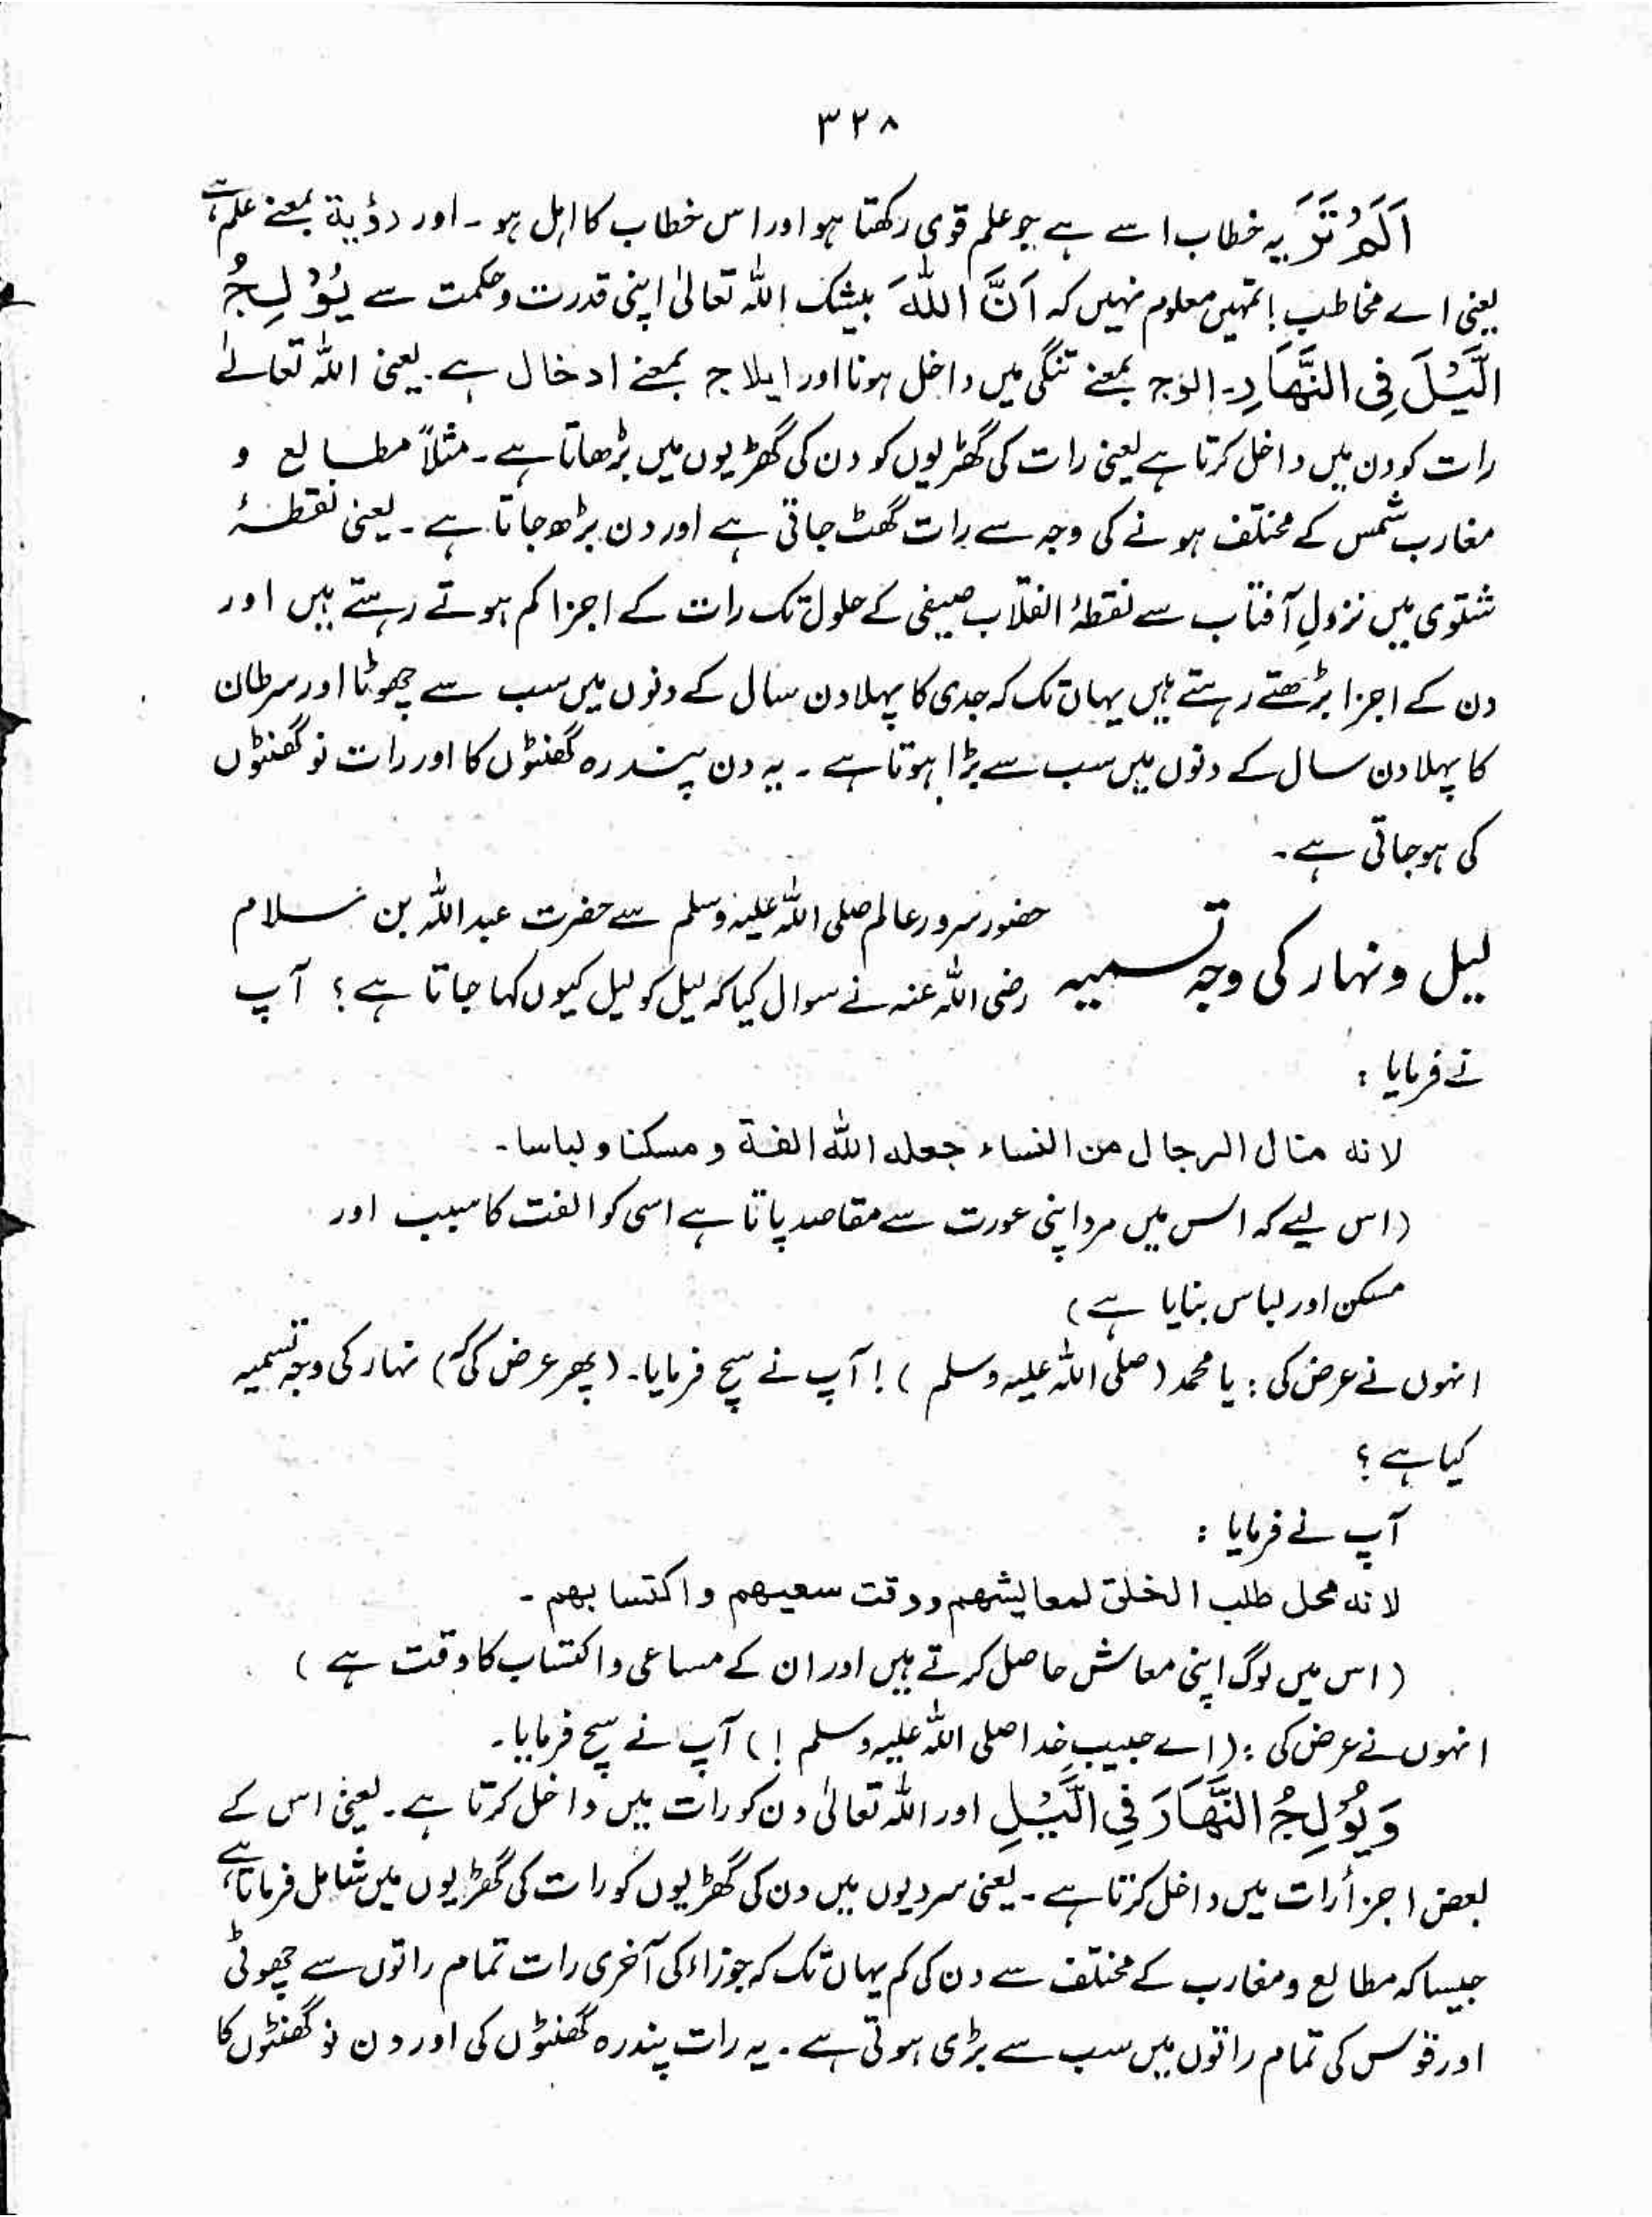 ۳۲۸
اَلَمْ تَرَ یہ خطاب اسے ہے جو علم قوی رکھتا ہو اور اس خطاب کا اہل ہو۔ اور رؤیۃ بمعنے علم ہے
یعنی اے مخاطب! تمہیں معلوم نہیں کہ اَنَّ اللّٰہَ بیشک اللہ تعالیٰ اپنی قدرت و حکمت سے یُوْلِجُ
الَّیْلَ فِی النَّھَارِ۔ الوج بمعنے تنگی میں داخل ہونا اور ایلاج بمعنے ادخال ہے۔ یعنی اللہ تعالےٰ
رات کو دن میں داخل کرتا ہے یعنی رات کی گھڑیوں کو دن کی گھڑیوں میں بڑھاتا ہے۔ مثلاً مطالع و
مغارب شمس کے مختلف ہونے کی وجہ سے رات گھٹ جاتی ہے اور دن بڑھ جاتا ہے۔ یعنی نقطۂ
شتوی میں نزولِ آفتاب سے نقطۂ انقلاب صیفی کے حلول تک رات کے اجزا کم ہوتے رہتے ہیں اور
دن کے اجزا بڑھتے رہتے ہیں یہاں تک کہ جدی کا پہلا دن سال کے دنوں میں سب سے چھوٹا اور سرطان
کا پہلا دن سال کے دنوں میں سب سے بڑا ہوتا ہے۔ یہ دن پندرہ گھنٹوں کا اور رات نو گھنٹوں
کی ہوجاتی ہے۔
لیل و نہار کی وجہ تسمیہ
حضور سرور عالم صلی اللہ علیہ وسلم سے حضرت عبداللہ بن سلام
رضی اللہ عنہ نے سوال کیا کہ لیل کو لیل کیوں کہا جاتا ہے؟ آپ
نے فرمایا :
لانہ منال الرجال من النساء جعلہ اللہ الفۃ و مسکنا و لباسا۔
(اس لیے کہ اس میں مرد اپنی عورت سے مقاصد پاتا ہے اسی کو الفت کا سبب اور
مسکن اور لباس بنایا ہے)
انہوں نے عرض کی : یا محمد (صلی اللہ علیہ وسلم) ! آپ نے سچ فرمایا۔ (پھر عرض کی کہ) نہار کی وجہ تسمیہ
کیا ہے؟
آپ نے فرمایا :
لانہ محل طلب الخلق لمعایشھم و وقت سعیھم و اکتسابھم۔
(اس میں لوگ اپنی معاش حاصل کرتے ہیں اور ان کے مساعی و اکتساب کا وقت ہے)
انہوں نے عرض کی : (اے حبیبِ خدا صلی اللہ علیہ وسلم !) آپ نے سچ فرمایا۔
وَیُوْلِجُ النَّھَارَ فِی الَّیْلِ اور اللہ تعالیٰ دن کو رات میں داخل کرتا ہے۔ یعنی اس کے
بعض اجزأ رات میں داخل کرتا ہے۔ یعنی سردیوں میں دن کی گھڑیوں کو رات کی گھڑیوں میں شامل فرماتا ہے
جیسا کہ مطالع و مغارب کے مختلف سے دن کی کم یہاں تک کہ جوزاء کی آخری رات تمام راتوں سے چھوٹی
اور قوس کی تمام راتوں میں سب سے بڑی ہوتی ہے۔ یہ رات پندرہ گھنٹوں کی اور دن نو گھنٹوں کا